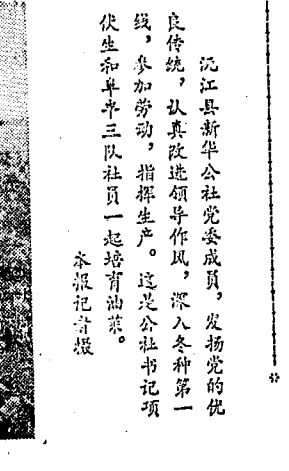 沅江县新华公社党委成员，发扬党的优
良传统，认真改进领导作风，深入冬种第一
线，参加劳动，指挥生产。这是公社书记项
伏生和阜中三队社员一起培育油菜。
本报记者摄